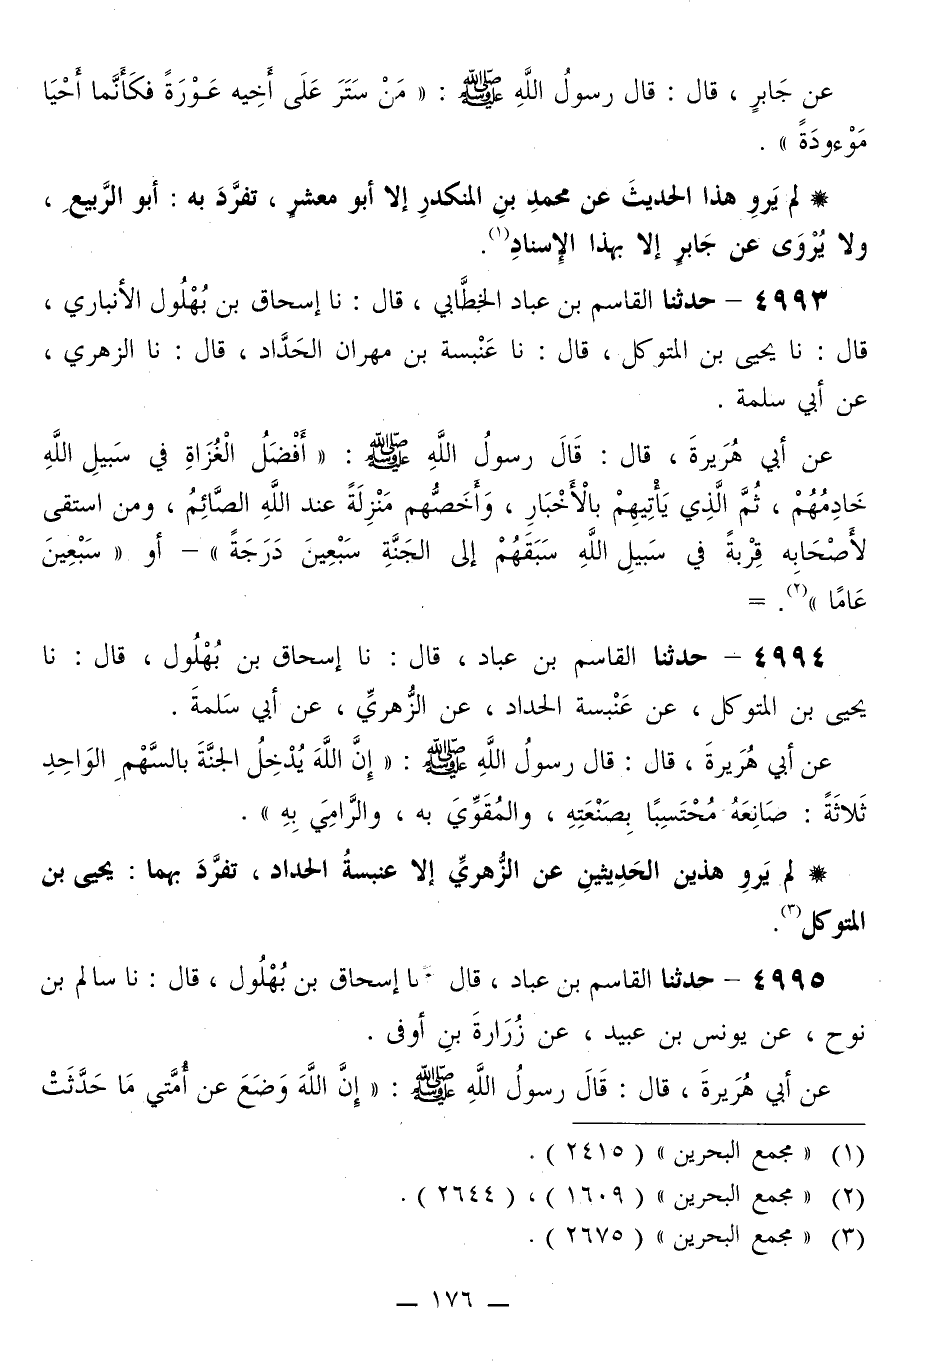 عن جَابرٍ ، قال : قال رسولُ اللَّهِ ﷺ : « مَنْ سَتَرَ عَلَى أَخِيه عَـوْرَةً فكَأَنَّما أَحْيَا
مَوْءودَةً » .
* لم يَروِ هذا الحديثَ عن محمدِ بنِ المنكدرِ إلا أبو معشرٍ ، تفرَّدَ به : أبو الرَّبيعِ ،
ولا يُرْوَى عن جَابرٍ إلا بهذا الإِسنادِ(١).
٤٩٩٣ – حدثنا القاسم بن عباد الخطَّابي ، قال : نا إسحاق بن بُهْلُول الأنباري ،
قال : نا يحيى بن المتوكل ، قال : نا عَنْبسة بن مهران الحَدَّاد ، قال : نا الزهري ،
عن أبي سلمة .
عن أبي هُرَيرةَ ، قال : قَالَ رسولُ اللَّهِ ﷺ : « أَفْضَلُ الْغُزَاةِ في سَبيلِ اللَّهِ
خَادِمُهُمْ ، ثُمَّ الَّذِي يَأْتِيهِمْ بالْأَخْبَارِ ، وَأَخَصُّهُم مَنْزِلَةً عند اللَّهِ الصَّائِمُ ، ومن استقى
لأَصْحَابِه قِرْبةً في سَبيلِ اللَّهِ سَبَقَهُمْ إلى الجَنَّةِ سَبْعِينَ دَرَجَةً » – أو « سَبْعِينَ
عَامًا »(٢). =
٤٩٩٤ – حدثنا القاسم بن عباد ، قال : نا إسحاق بن بُهْلُول ، قال : نا
يحيى بن المتوكل ، عن عَنْبسة الحداد ، عن الزُّهريِّ ، عن أبي سَلمةَ .
عن أبي هُرَيرةَ ، قال : قال رسولُ اللَّهِ ﷺ : « إنَّ اللَّهَ يُدْخِلُ الجنَّةَ بالسَّهْمِ الوَاحِدِ
ثَلاثَةً : صَانِعَهُ مُحْتَسِبًا بِصَنْعَتِهِ ، والمُقَوِّيَ به ، والرَّامِيَ بِهِ » .
* لم يَروِ هذين الحَدِيثينِ عن الزُّهريِّ إلا عنبسةُ الحداد ، تفرَّدَ بهما : يحيى بن
المتوكل(٣).
٤٩٩٥ – حدثنا القاسم بن عباد ، قال نا إسحاق بن بُهْلُول ، قال : نا سالم بن
نوح ، عن يونس بن عبيد ، عن زُرَارةَ بنِ أوفى .
عن أبي هُرَيرةَ ، قال : قَالَ رسولُ اللَّهِ ﷺ : « إنَّ اللَّهَ وَضَعَ عن أُمَّتي مَا حَدَّثَتْ
(١) « مجمع البحرين » ( ٢٤١٥ ) .
(٢) « مجمع البحرين » ( ١٦٠٩ ) ، ( ٢٦٤٤ ) .
(٣) « مجمع البحرين » ( ٢٦٧٥ ) .
– ١٧٦ –